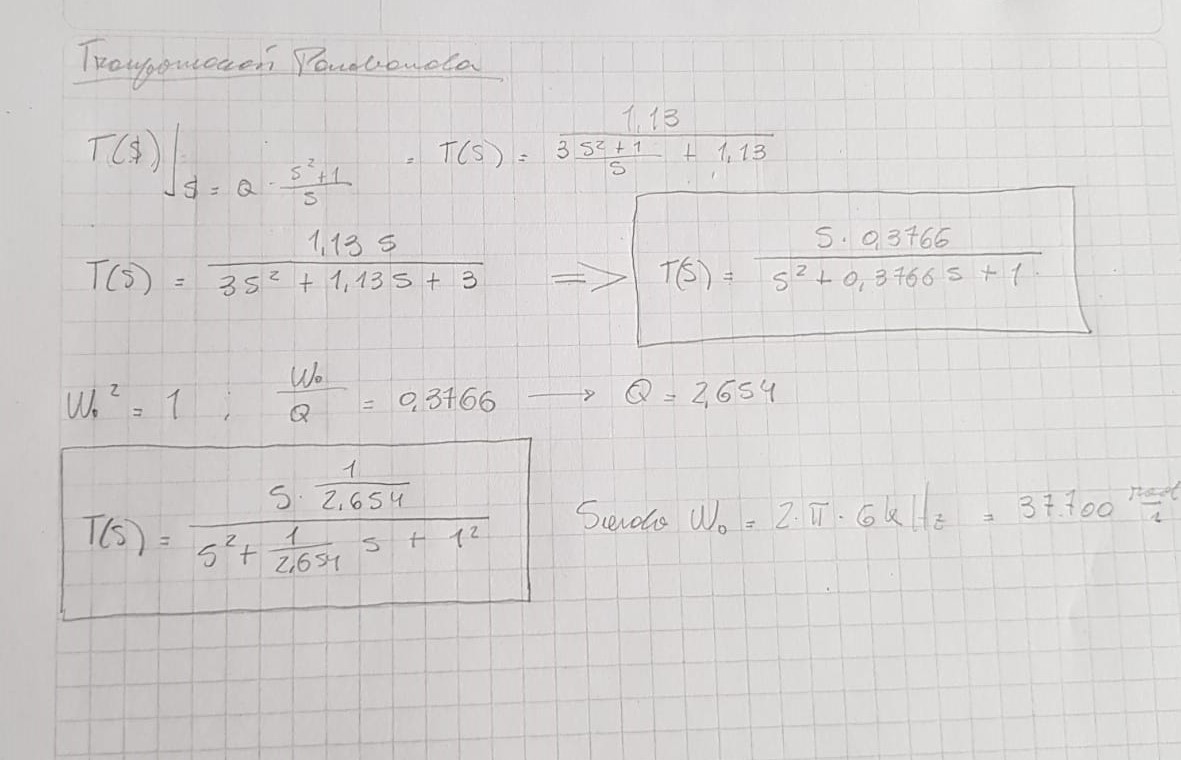 Transformación Pasabanda
T($)|$ = Q · (s²+1)/s = T(s) = 1,13 / (3 (s²+1)/s + 1,13)
T(s) = 1,13 s / (3s² + 1,13 s + 3) => T(s) = s · 0,3766 / (s² + 0,3766 s + 1)
W₀² = 1 ; W₀/Q = 0,3766 → Q = 2,654
T(s) = s · 1/2,654 / (s² + 1/2,654 s + 1²) Siendo W₀ = 2·π·6kHz = 37.700 rad/s